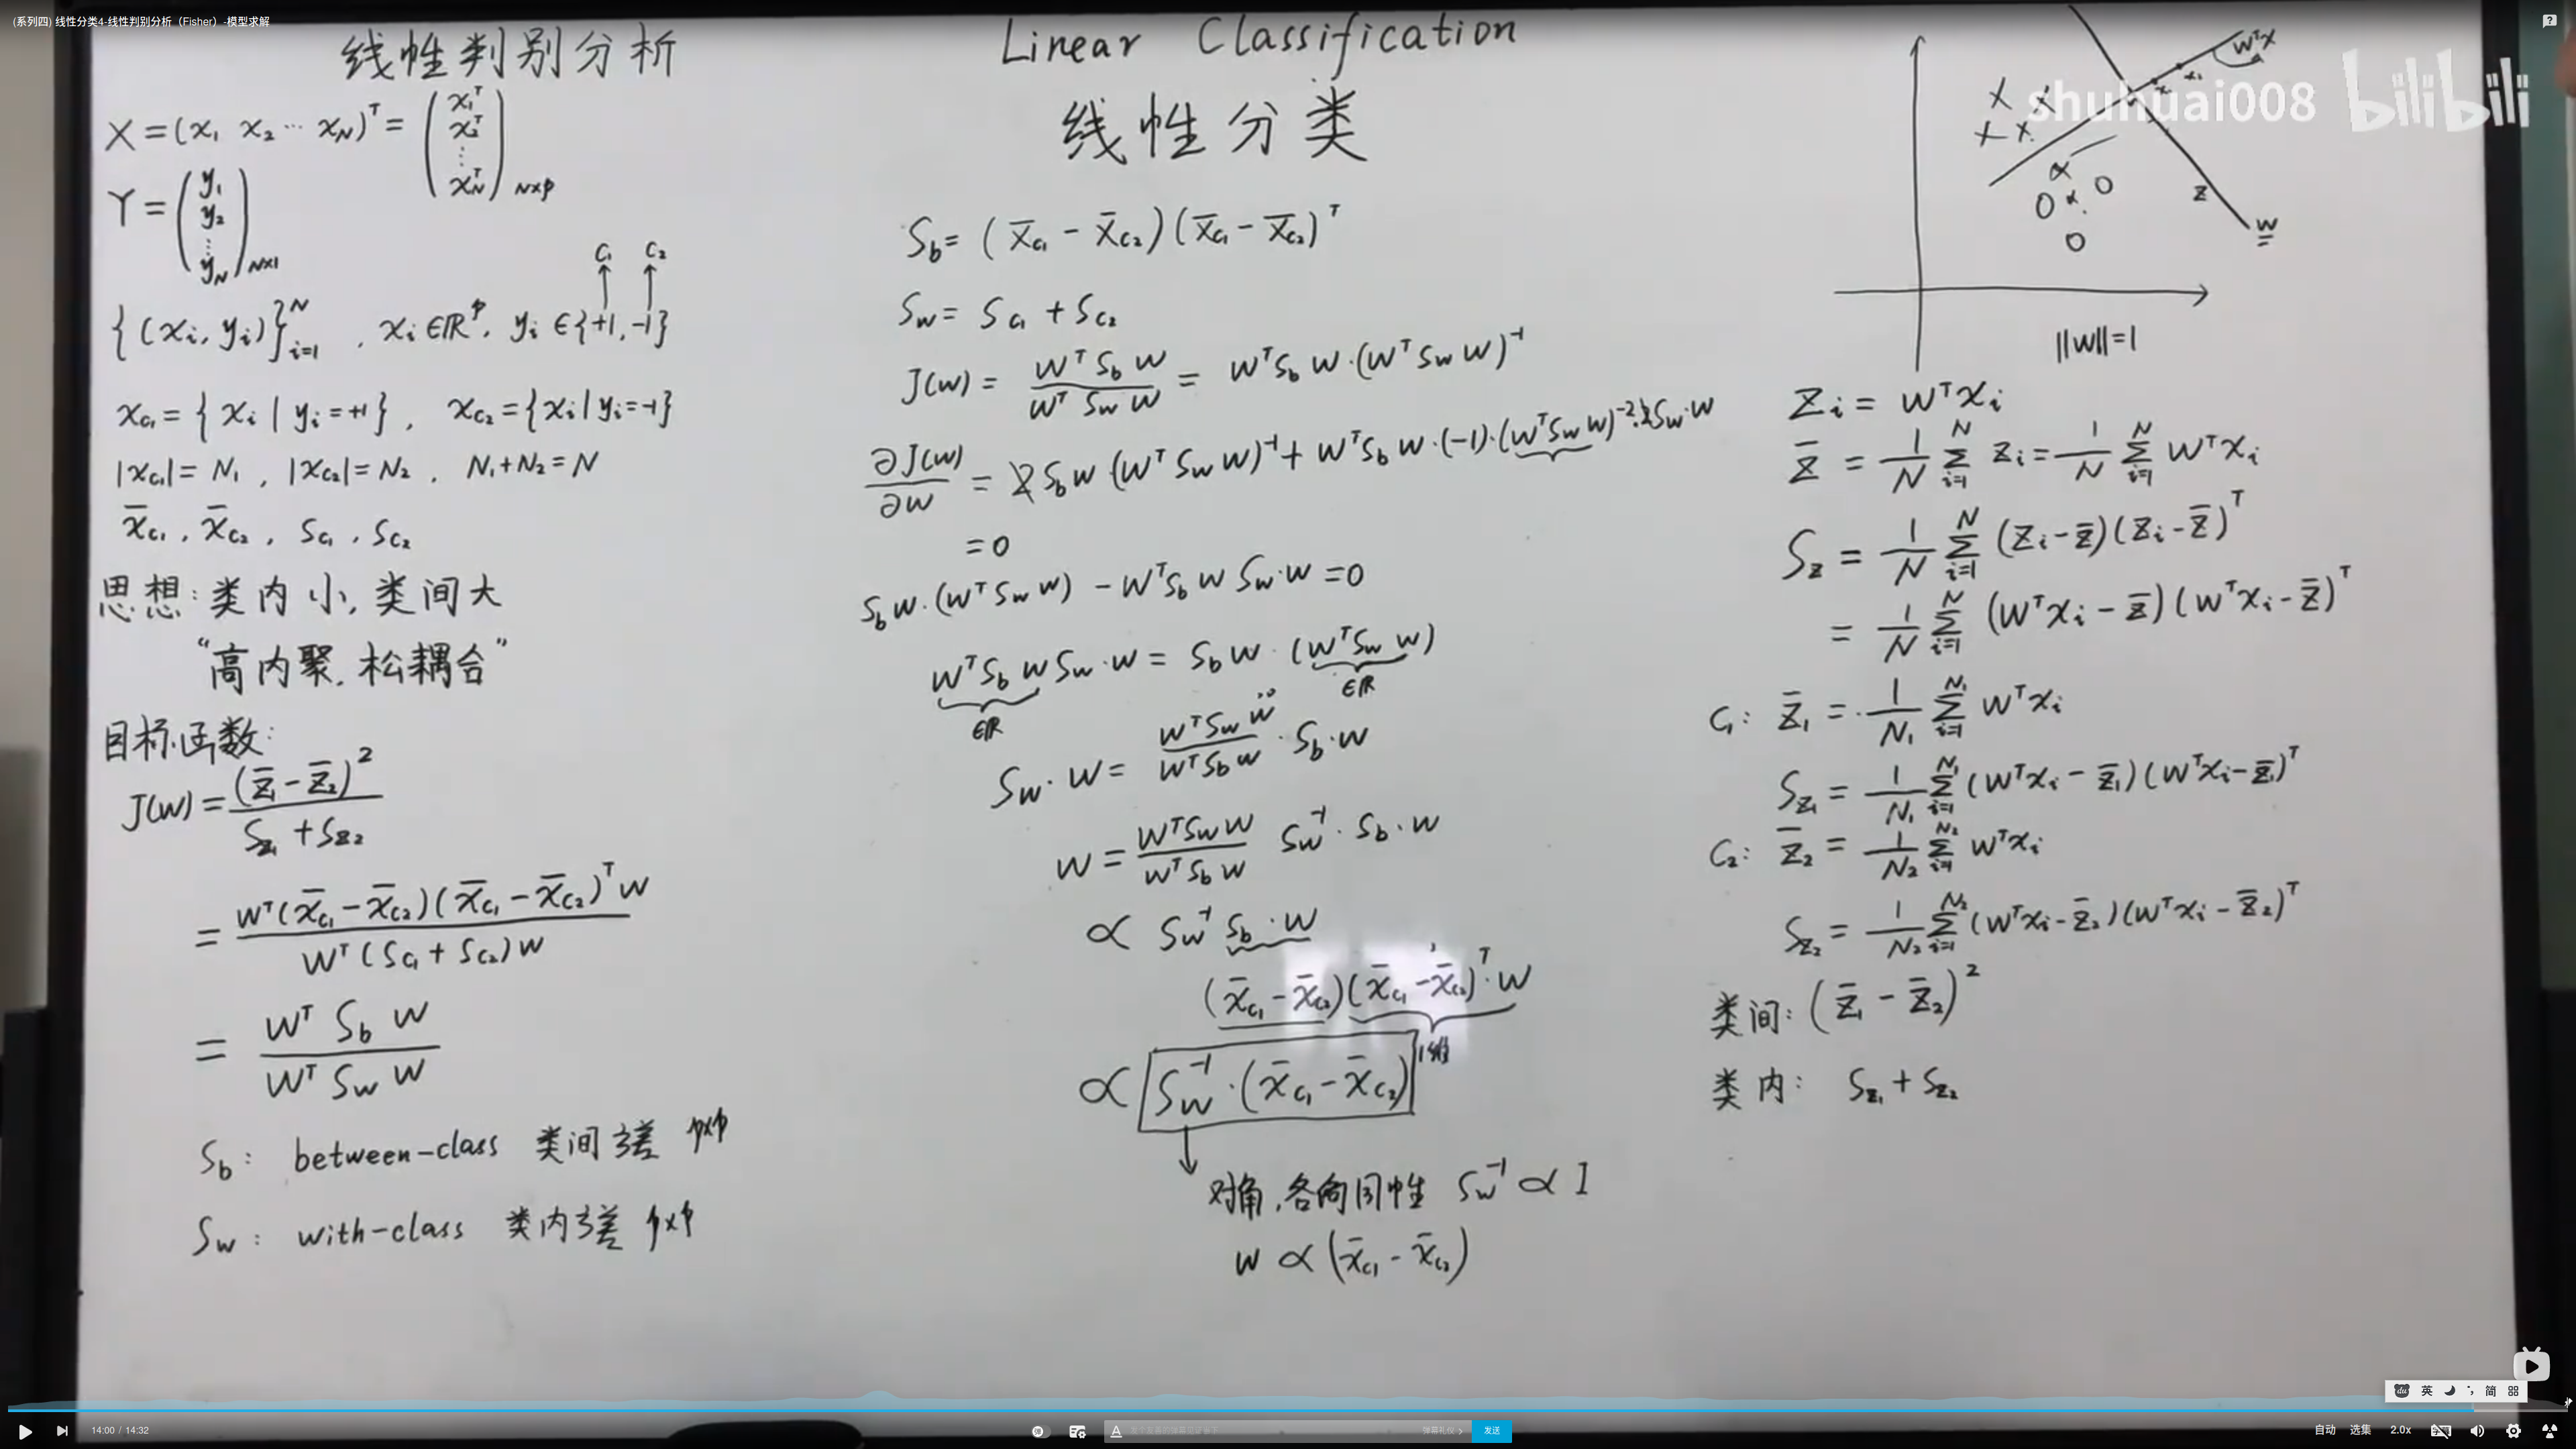 (系列四) 线性分类4-线性判别分析（Fisher）-模型求解
线性判别分析
X = (x₁ x₂ ⋯ x_N)ᵀ = (x₁ᵀ x₂ᵀ ⋮ x_Nᵀ)_{N×p}
Y = (y₁ y₂ ⋮ y_N)_{N×1}
C₁ C₂
{(xᵢ, yᵢ)}ᵢ₌₁ᴺ , xᵢ ∈ ℝᵖ, yᵢ ∈ {+1, -1}
x_{C₁} = { xᵢ | yᵢ = +1 } , x_{C₂} = { xᵢ | yᵢ = -1 }
|x_{C₁}| = N₁ , |x_{C₂}| = N₂ , N₁ + N₂ = N
x̄_{C₁} , x̄_{C₂} , S_{C₁} , S_{C₂}
思想: 类内小, 类间大
“高内聚, 松耦合”
目标函数:
J(w) = (z̄₁ - z̄₂)² / (S_{z₁} + S_{z₂})
= wᵀ(x̄_{C₁} - x̄_{C₂})(x̄_{C₁} - x̄_{C₂})ᵀw / wᵀ(S_{C₁} + S_{C₂})w
= wᵀ S_b w / wᵀ S_w w
S_b : between-class 类间方差 p×p
S_w : with-class 类内方差 p×p
Linear Classification
线性分类
S_b = (x̄_{C₁} - x̄_{C₂})(x̄_{C₁} - x̄_{C₂})ᵀ
S_w = S_{C₁} + S_{C₂}
J(w) = wᵀ S_b w / wᵀ S_w w = wᵀ S_b w · (wᵀ S_w w)⁻¹
∂J(w)/∂w = 2 S_b w (wᵀ S_w w)⁻¹ + wᵀ S_b w · (-1) · (wᵀ S_w w)⁻² · 2 S_w · w
= 0
S_b w · (wᵀ S_w w) - wᵀ S_b w S_w · w = 0
wᵀ S_b w S_w · w = S_b w · (wᵀ S_w w)
∈ℝ ∈ℝ
S_w · w = wᵀ S_w w / wᵀ S_b w · S_b · w
w = wᵀ S_w w / wᵀ S_b w S_w⁻¹ · S_b · w
∝ S_w⁻¹ S_b · w
(x̄_{C₁} - x̄_{C₂})(x̄_{C₁} - x̄_{C₂})ᵀ · w
1维
∝ S_w⁻¹ · (x̄_{C₁} - x̄_{C₂})
对角, 各向同性 S_w⁻¹ ∝ I
w ∝ (x̄_{C₁} - x̄_{C₂})
shuhuai008 bilibili
wᵀx
z
w
||w|| = 1
zᵢ = wᵀxᵢ
z̄ = 1/N Σᵢ₌₁ᴺ zᵢ = 1/N Σᵢ₌₁ᴺ wᵀxᵢ
S_z = 1/N Σᵢ₌₁ᴺ (zᵢ - z̄)(zᵢ - z̄)ᵀ
= 1/N Σᵢ₌₁ᴺ (wᵀxᵢ - z̄)(wᵀxᵢ - z̄)ᵀ
C₁: z̄₁ = 1/N₁ Σᵢ₌₁^{N₁} wᵀxᵢ
S_{z₁} = 1/N₁ Σᵢ₌₁^{N₁} (wᵀxᵢ - z̄₁)(wᵀxᵢ - z̄₁)ᵀ
C₂: z̄₂ = 1/N₂ Σᵢ₌₁^{N₂} wᵀxᵢ
S_{z₂} = 1/N₂ Σᵢ₌₁^{N₂} (wᵀxᵢ - z̄₂)(wᵀxᵢ - z̄₂)ᵀ
类间: (z̄₁ - z̄₂)²
类内: S_{z₁} + S_{z₂}
du 英 简
14:00 / 14:32
弹幕礼仪 >
发送
自动 选集 2.0x